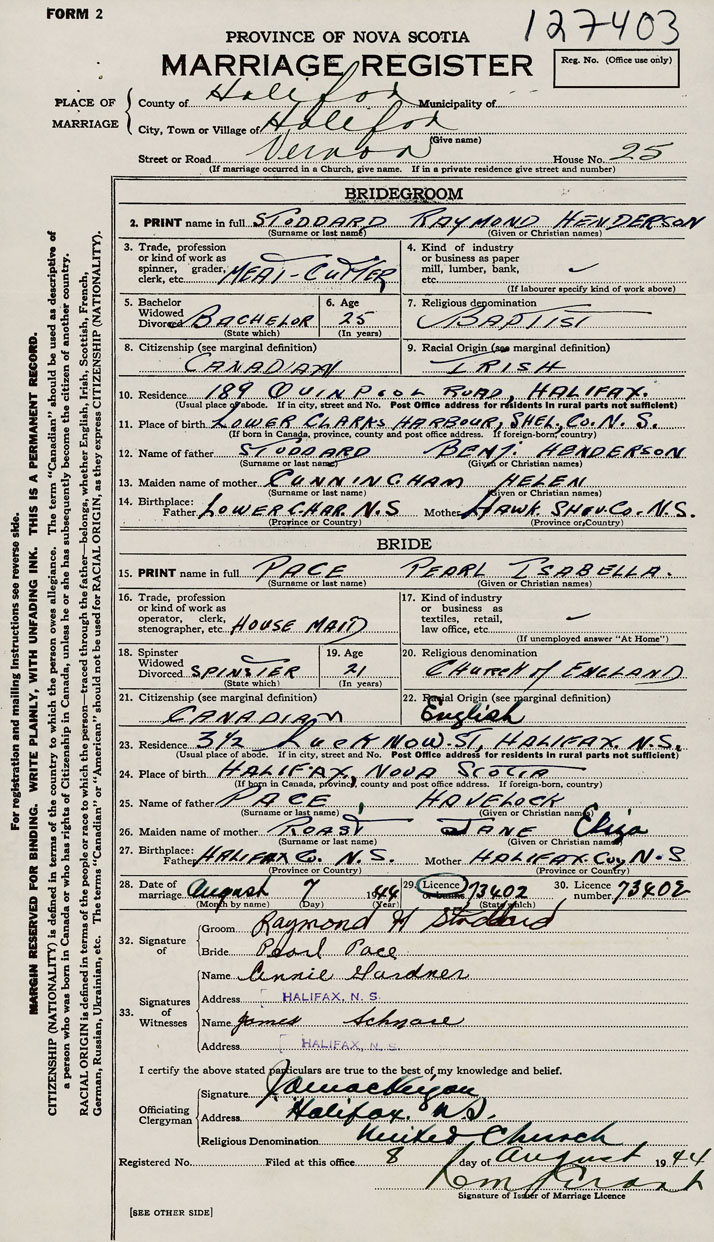 FORM 2
127403
PROVINCE OF NOVA SCOTIA
MARRIAGE REGISTER
Reg. No. (Office use only)
PLACE OF MARRIAGE
County of Halifax Municipality of
City, Town or Village of Halifax
(Give name)
Street or Road Vernon House No. 25
(If marriage occurred in a Church, give name. If in a private residence give street and number)
BRIDEGROOM
2. PRINT name in full STODDARD RAYMOND HENDERSON
(Surname or last name) (Given or Christian names)
3. Trade, profession or kind of work as spinner, grader, clerk, etc. MEAT-CUTTER
4. Kind of industry or business as paper mill, lumber, bank, etc. ✓
(If labourer specify kind of work above)
5. Bachelor Widowed Divorced BACHELOR
(State which)
6. Age 25
(In years)
7. Religious denomination BAPTIST
8. Citizenship (see marginal definition) CANADIAN
9. Racial Origin (see marginal definition) IRISH
10. Residence 189 QUINPOOL ROAD, HALIFAX.
(Usual place of abode. If in city, street and No. Post Office address for residents in rural parts not sufficient)
11. Place of birth LOWER CLARKS HARBOUR, SHEL. CO. N. S.
(If born in Canada, province, county and post office address. If foreign-born, country)
12. Name of father STODDARD BENJ. HENDERSON
(Surname or last name) (Given or Christian names)
13. Maiden name of mother CUNNINGHAM HELEN
(Surname or last name) (Given or Christian names)
14. Birthplace: Father LOWER CHAR. N.S Mother HAWK SHEL. CO. N.S.
(Province or Country) (Province or Country)
BRIDE
15. PRINT name in full PACE PEARL ISABELLA.
(Surname or last name) (Given or Christian names)
16. Trade, profession or kind of work as operator, clerk, stenographer, etc. HOUSE MAID
17. Kind of industry or business as textiles, retail, law office, etc. ✓
(If unemployed answer "At Home")
18. Spinster Widowed Divorced SPINSTER
(State which)
19. Age 21
(In years)
20. Religious denomination CHURCH of ENGLAND
21. Citizenship (see marginal definition) CANADIAN
22. Racial Origin (see marginal definition) English
23. Residence 3½ LUCKNOW ST, HALIFAX N.S.
(Usual place of abode. If in city, street and No. Post Office address for residents in rural parts not sufficient)
24. Place of birth HALIFAX, NOVA SCOTIA
(If born in Canada, province, county and post office address. If foreign-born, country)
25. Name of father PACE, HAVELOCK
(Surname or last name) (Given or Christian names)
26. Maiden name of mother ROAST JANE Eliza
(Surname or last name) (Given or Christian names)
27. Birthplace: Father HALIFAX CO. N. S. Mother HALIFAX Co, N. S
(Province or Country) (Province or Country)
28. Date of marriage August 7 1944
(Month by name) (Day) (Year)
29. Licence or banns 73402
(State which)
30. Licence number 73402
32. Signature of
Groom Raymond H Stoddard
Bride Pearl Pace
33. Signatures of Witnesses
Name Annie Gardner
Address HALIFAX, N. S.
Name James Schnare
Address HALIFAX, N. S.
I certify the above stated particulars are true to the best of my knowledge and belief.
Officiating Clergyman
Signature
Address Halifax. N.S.
Religious Denomination United Church
Registered No. Filed at this office 8 day of August 1944
Signature of Issuer of Marriage Licence
[SEE OTHER SIDE]
For registration and mailing instructions see reverse side.
MARGIN RESERVED FOR BINDING. WRITE PLAINLY, WITH UNFADING INK. THIS IS A PERMANENT RECORD.
CITIZENSHIP (NATIONALITY) is defined in terms of the country to which the person owes allegiance. The term "Canadian" should be used as descriptive of
a person who was born in Canada or who has rights of Citizenship in Canada, unless he or she has subsequently become the citizen of another country.
RACIAL ORIGIN is defined in terms of the people or race to which the person—traced through the father—belongs, whether English, Irish, Scottish, French,
German, Russian, Ukrainian, etc. The terms "Canadian" or "American" should not be used for RACIAL ORIGIN, as they express CITIZENSHIP (NATIONALITY).